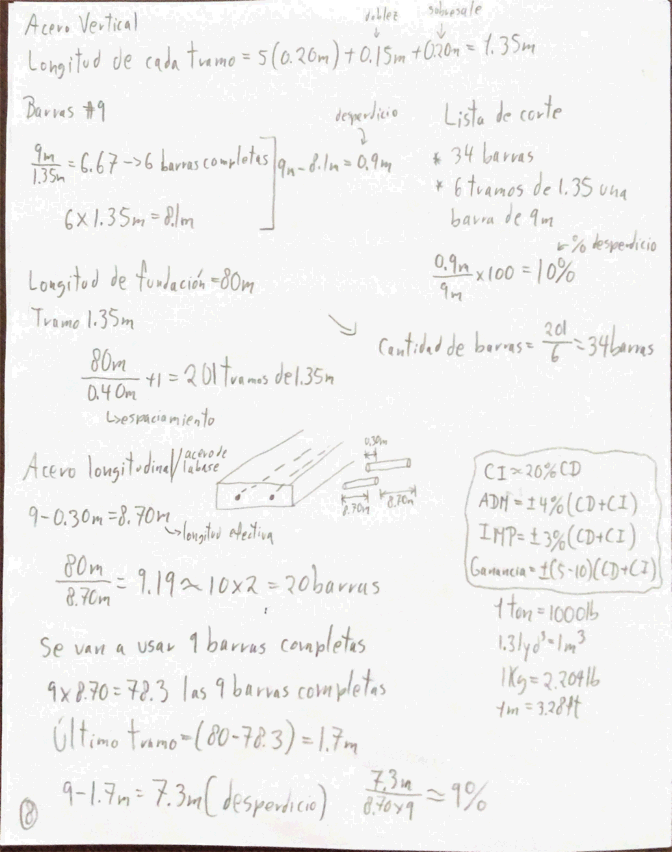 Acero Vertical
doblez sobresale
Longitud de cada tramo = 5(0.20m) + 0.15m + 0.20m = 1.35m
Barras #9
9m/1.35m = 6.67 → 6 barras completas
6 x 1.35m = 8.1m
desperdicio
9m - 8.1m = 0.9m
Lista de corte
* 34 barras
* 6 tramos de 1.35 una
barra de 9m
% desperdicio
0.9m/9m x 100 = 10%
Longitud de fundación = 80m
Tramo 1.35m
80m/0.40m + 1 = 201 tramos de 1.35m
↳ espaciamiento
Cantidad de barras = 201/6 = 34 barras
Acero longitudinal / acero de
la base
0.30m
8.70m 8.70m
9 - 0.30m = 8.70m
↳ longitud efectiva
80m/8.70m = 9.19 ≈ 10 x 2 = 20 barras
CI ≈ 20% CD
ADM = ±4% (CD+CI)
IMP = ±3% (CD+CI)
Ganancia = ±(5-10)(CD+CI)
1 ton = 1000lb
1.31yd³ = 1m³
1Kg = 2.204lb
1m = 3.28ft
Se van a usar 9 barras completas
9 x 8.70 = 78.3 las 9 barras completas
Último tramo = (80 - 78.3) = 1.7m
9 - 1.7m = 7.3m (desperdicio) 7.3m/8.70x9 ≈ 9%
8